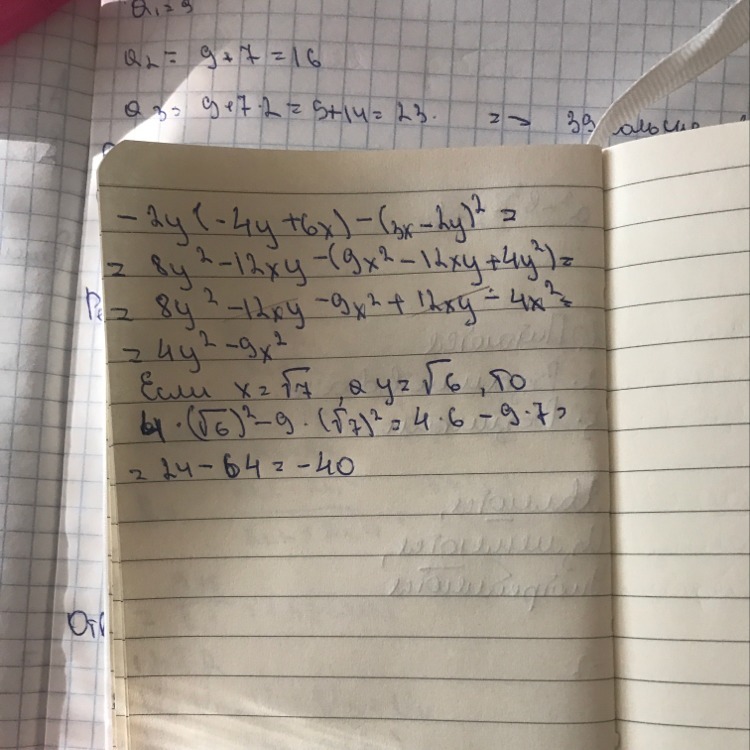 a₁=9
a₂= 9+7=16
a₃= 9+7·2=9+14=23. => 39
-2y(-4y+6x)-(3x-2y)²=
= 8y²-12xy-(9x²-12xy+4y²)=
= 8y²-12xy-9x²+12xy-4x²=
= 4y²-9x²
Если x=√7, а y=√6, то
4·(√6)²-9·(√7)²=4·6-9·7=
= 24-64=-40